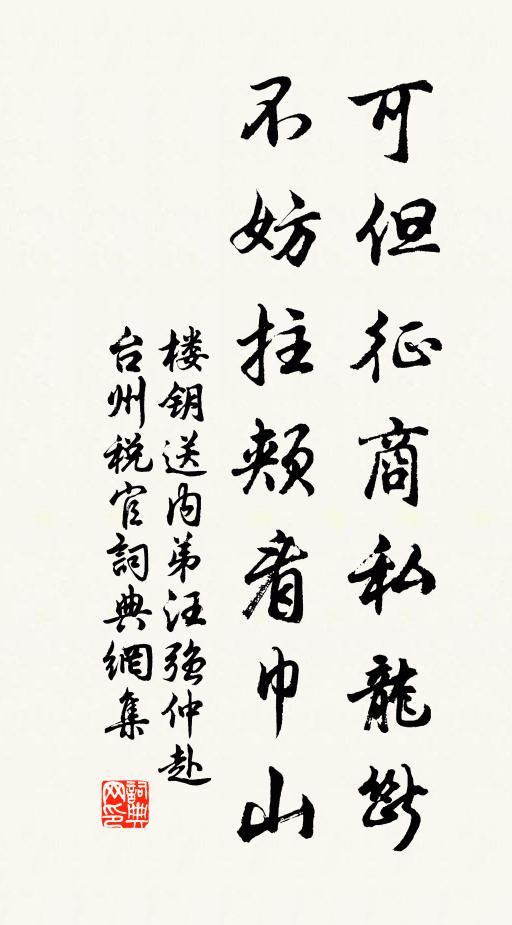 可但征商私龍斷
不妨拄頰看巾山
楼钥送内弟汪强仲赴
台州税官詞典網集
詞典网印